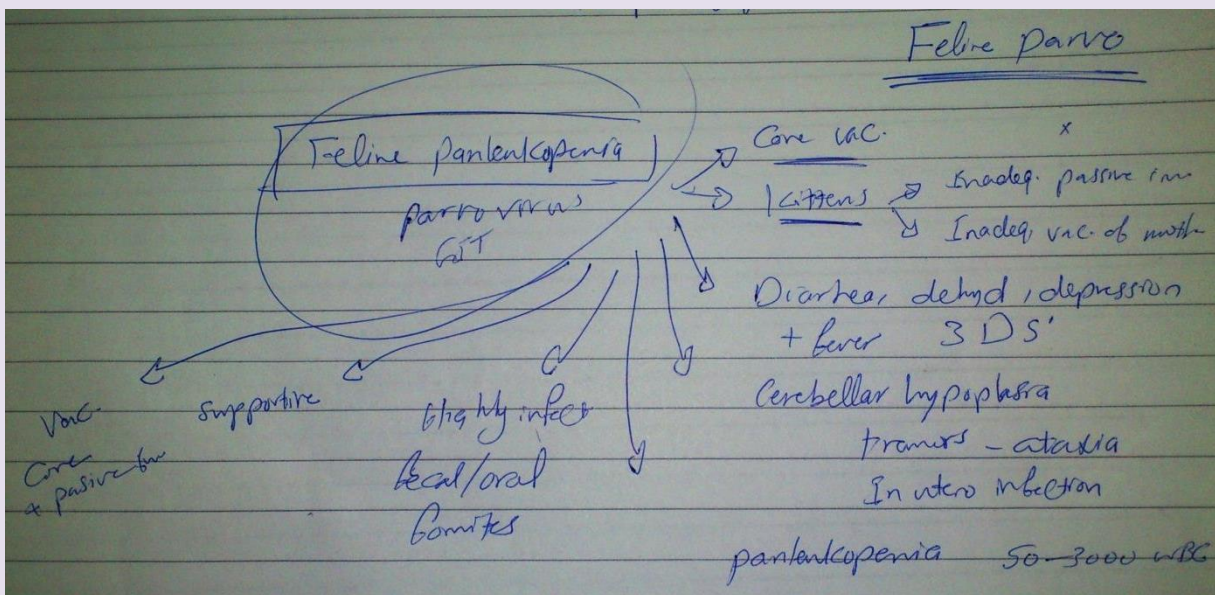 Feline parvo
Feline panleukopenia
parvovirus
GIT
Core vac.
x
kittens
Inadeq. passive im.
Inadeq. vac. of moth
Diarhea, dehyd, depression
+ fever 3 DS'
Cerebellar hypoplasia
tremors - ataxia
In utero infection
panleukopenia 50-3000 WBC
Highly infect
fecal/oral
fomites
supportive
Vac.
Core
+ pasive im